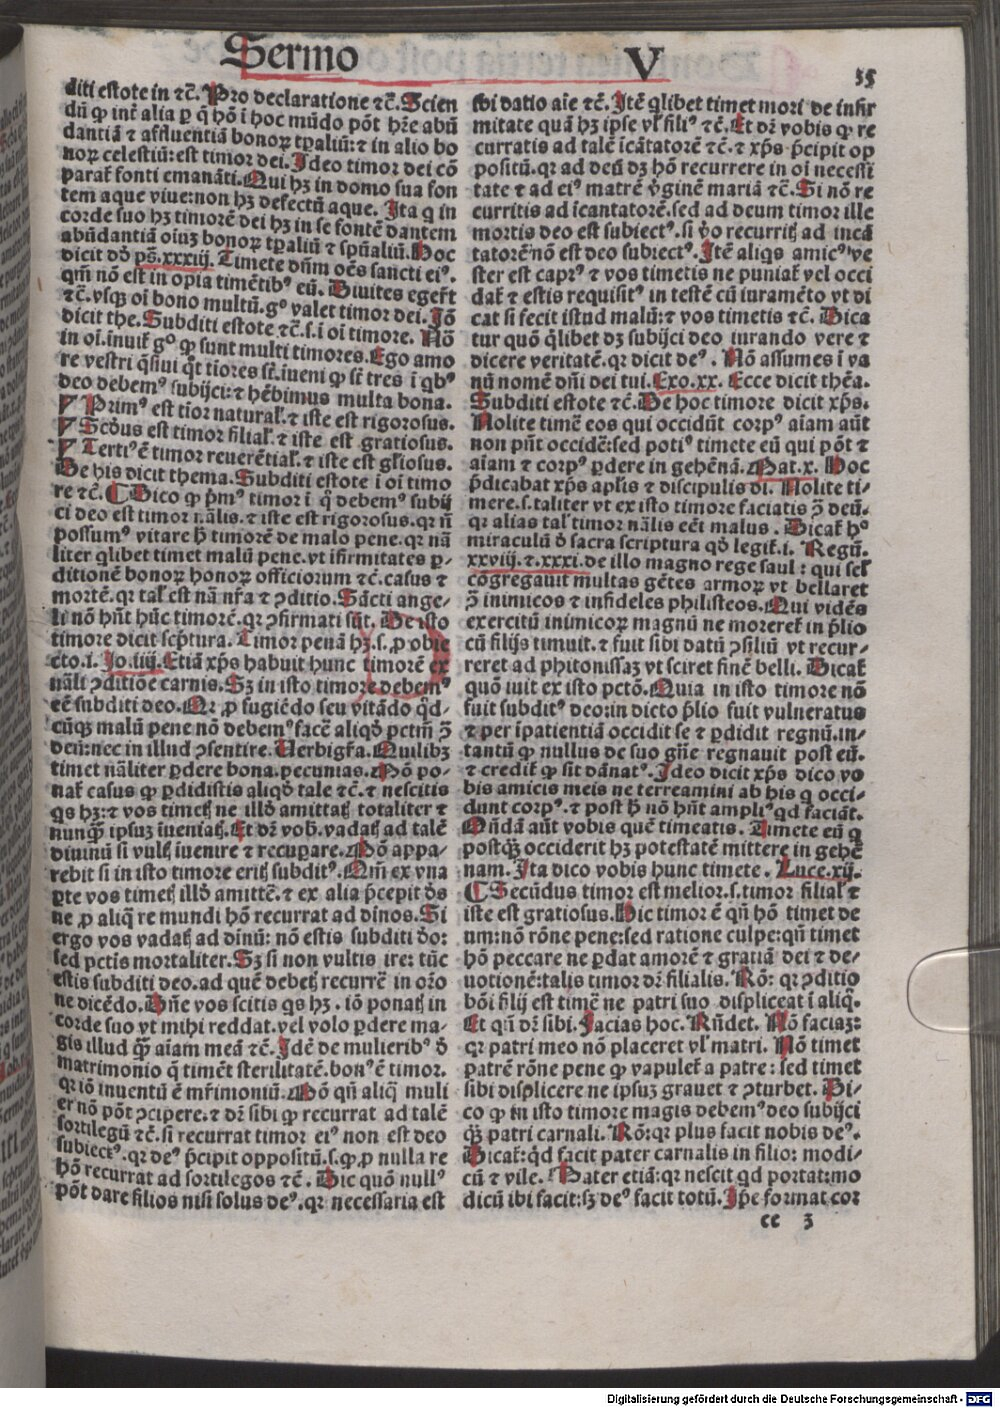 Sermo V
35
diti estote in ⁊c̄. Pro declaratione ⁊c̄. Scien
dū ꝙ int̄ alia p q̄ hō ī hoc mūdo pōt hr̄e abū
dantiā ⁊ affluentiā bonoꝝ tp̄aliū: ⁊ in alio bo
noꝝ celestiū: est timor dei. Ideo timor dei cō
paraꝉ fonti emanāti. Qui hꝫ in domo sua fon
tem aque viue: non hꝫ defectū aque. Ita q in
corde suo hꝫ timorē dei hꝫ in se fontē dantem
abūdantiā oīuꝫ bonoꝝ tp̄aliū ⁊ spūaliū. Hoc
dicit dō ps̄. xxxiij. Timete dn̄m oēs sancti eiꝰ.
qm̄ nō est in opia timētibꝰ eū. Diuites egeꝛt̄
⁊c̄. vsqꝫ oī bono multū. gͦ valet timor dei. Iō
dicit the. Subditi estote ⁊c̄. s. ī oī timore. Nō
in oī. inuiꝉ gͦ ꝙ sunt multi timores. Ego amo
re vestri q̄siui q̄t tīores sc̄. iueni ꝙ sc̄ tres ī qbꝰ
deo debemꝰ subijci: ⁊ hēbimus multa bona.
Primꝰ est tīor naturaꝉ. ⁊ iste est rigorosus.
Scd̄us est timor filiaꝉ. ⁊ iste est gratiosus.
Tertiꝰ ē timor reuerētiaꝉ. ⁊ iste est gꝉiosus.
De his dicit thema. Subditi estote ī oī timo
re ⁊c̄. Dico ꝙ pͥmꝰ timor ī q̄ debemꝰ subij
ci deo est timor nālis. ⁊ iste est rigorosus. qꝛ nō
possumꝰ vitare h̄ timorē de malo pene. qꝛ nā
liter qlibet timet malū pene. vt īfirmitates ꝑ-
ditionē bonoꝝ honoꝝ officiorum ⁊c̄. casus ⁊
mortē. qꝛ taꝉ est nā nr̄a ⁊ ꝯditio. Sācti ange-
li nō hn̄t hūc timorē. qꝛ ꝯfirmati sūt. De isto
timore dicit scp̄tura. Timor penā hꝫ. s. ꝓ obie
cto. i. Jo. iiij. Etiā xp̄s habuit hunc timorē ex
nāli ꝯditioē carnis. Sꝫ in isto timore debemꝰ
eē subditi deo. Qꝛ ꝓ fugiēdo seu vitādo qd̄-
cūqꝫ malū pene nō debemꝰ facē aliqd̄ pctm̄ ꝯ̄
deū: nec in illud ꝯsentire. Verbigr̄a. Quilibꝫ
timet nāliter ꝑdere bona. pecunias. Mō po-
naꝉ casus ꝙ ꝑdidistis aliqd̄ tale ⁊c̄. ⁊ nescitis
qs hꝫ: ⁊ vos timetꝫ ne illd̄ amittatꝫ totaliter ⁊
nunqꝫ̄ ipsuꝫ īueniatꝫ. Et dꝛ̄ vob̄. vadatꝫ ad talē
diuinū si vultꝫ iuenire ⁊ recuꝑare. Mō appa-
rebit si in isto timore eritꝫ subditꝰ. Qm̄ ex vna
ꝑte vos timetꝫ illd̄ amittē. ⁊ ex alia p̄cepit dē̄s
ne ꝓ aliq̄ re mundi hō recurrat ad diuinos. Si
ergo vos vadatꝫ ad dinū: nō estis subditi deo:
sed pctīs mortaliter. Sꝫ si non vultis ire: tūc
estis subditi deo. ad quē debetꝫ recurrē in oꝛ̄o
ne dicēdo. Dn̄e vos scitis qs hꝫ. iō ponatꝫ in
corde suo vt mihi reddat. vel volo ꝑdere ma-
gis illud qꝫ̄ aīam meā ⁊c̄. Idē de mulieribꝰ ō
matrimonio q̄ timēt sterilitatē. bonꝰ ē timor.
qꝛ iō inuentū ē mr̄imoniū. Mō qn̄ aliq̄ muli
er nō pōt ꝯcipere. ⁊ dꝛ̄ sibi ꝙ recurrat ad talē
sortilegū ⁊c̄. si recurrat timor eiꝰ non est deo
subiectꝰ. qꝛ deꝰ p̄cipit oppositū. s. ꝙ. p nulla re
hō recurrat ad sortilegos ⁊c̄. Dic quō nullꝰ
pōt dare filios nisi solus deꝰ. qꝛ necessaria est
ibi datio aīe ⁊c̄. Itē qlibet timet mori de infir
mitate quā hꝫ ipse vꝉ filiꝰ ⁊c̄. Et dꝛ̄ vobis ꝙ re
curratis ad talē īcātatorē ⁊c̄. ⁊ xp̄s p̄cipit op
positū. qꝛ ad deū dꝫ hō recurrere in oī necessi
tate ⁊ ad eiꝰ matrē vͥginē mariā ⁊c̄. Si nō re
curritis ad īcantatorē. sed ad deum timor ille
mortis deo est subiectꝰ. si vͦo recurritꝫ ad incā
tatorē nō est deo subiectꝰ. Itē aliqs amicꝰ ve
ster est captꝰ ⁊ vos timetis ne puniaꝉ vel occi
daꝉ ⁊ estis requisitꝰ in testē cū iuramēto vt di
cat si fecit istud malū: ⁊ vos timetis ⁊c̄. Dica
tur quō qͥlibet dꝫ subijci deo iurando vere ⁊
dicere veritatē. qꝛ dicit deꝰ. Nō assumes ī va
nū nomē dn̄i dei tui. Exo. xx. Ecce dicit thēa.
Subditi estote ⁊c̄. De hoc timore dicit xp̄s.
Nolite timē eos qui occidūt corpꝰ aīam aūt
non pn̄t occidē: sed potiꝰ timete eū qui pōt ⁊
aīam ⁊ corpꝰ ꝑdere in gehēnā. Mat. x. Hoc
p̄dicabat xp̄s apl̄is ⁊ discipulis di. Nolite ti-
mere. s. taliter vt ex isto timore faciatis ꝯ̄ deū.
qꝛ alias taꝉ timor nālis eēt malus. Dicaꝉ hͦ
miraculū ō sacra scriptura qd̄ legiꝉ. i. Regū.
xxviij. ⁊. xxxi. de illo magno rege saul: qui scꝉ
cōgregauit multas gētes armoꝝ vt bellaret
ꝯ̄ inimicos ⁊ infideles philisteos. Qui vidēs
exercitū inimicoꝝ magnū ne moreret̄ in p̄lio
cū filijs timuit. ⁊ fuit sibi datū ꝯsiliū vt recur-
reret ad phitonissaꝫ vt sciret finē belli. Dicaꝉ
quō iuit ex isto pctō. Quia in isto timore nō
fuit subditꝰ deo: in dicto p̄lio fuit vulneratus
⁊ per īpatientiā occidit se ⁊ ꝑdidit regnū. in-
tantū ꝙ nullus de suo gn̄e regnauit post eū.
⁊ crediꝉ ꝙ sit dānatꝰ. Ideo dicit xp̄s dico vo
bis amicis meis ne terreamini ab his q occi-
dunt corpꝰ. ⁊ post h̄ nō hn̄t ampliꝰ qd faciāt.
Oñdā aūt vobis quē timeatis. Timete eū q
postqꝫ̄ occiderit hꝫ potestatē mittere in gehē
nam. Ita dico vobis hunc timete. Luce. xij.
Secūdus timor est melior. s. timor filiaꝉ ⁊
iste est gratiosus. Hic timor ē qn̄ hō timet de
um: nō rōne pene: sed ratione culpe: qn̄ timet
hō peccare ne ꝑdat amorē ⁊ gratiā dei ⁊ de-
uotionē: talis timor dꝛ̄ filialis. Rō: qꝛ ꝯditio
bōi filij est timē ne patri suo displiceat ī aliq̄.
Et qn̄ dꝛ̄ sibi. Facias hoc. Rn̄det. Nō faciaꝫ:
qꝛ patri meo nō placeret vꝉ matri. Nō timet
patrē rōne pene ꝙ vapuleꝉ a patre: sed timet
sibi displicere ne ipsuꝫ grauet ⁊ ꝯturbet. Di-
co ꝙ in isto timore magis debemꝰ deo subijci
qꝫ̄ patri carnali. Rō: qꝛ plus facit nobis deꝰ.
Dicaꝉ: qd̄ facit pater carnalis in filio: modi-
cū ⁊ vile. Mater etiā: qꝛ nescit qd portat: mo
dicū ibi facit: sꝫ deꝰ facit totū. Ip̄e format cor
cc 3
Digitalisierung gefördert durch die Deutsche Forschungsgemeinschaft - DFG